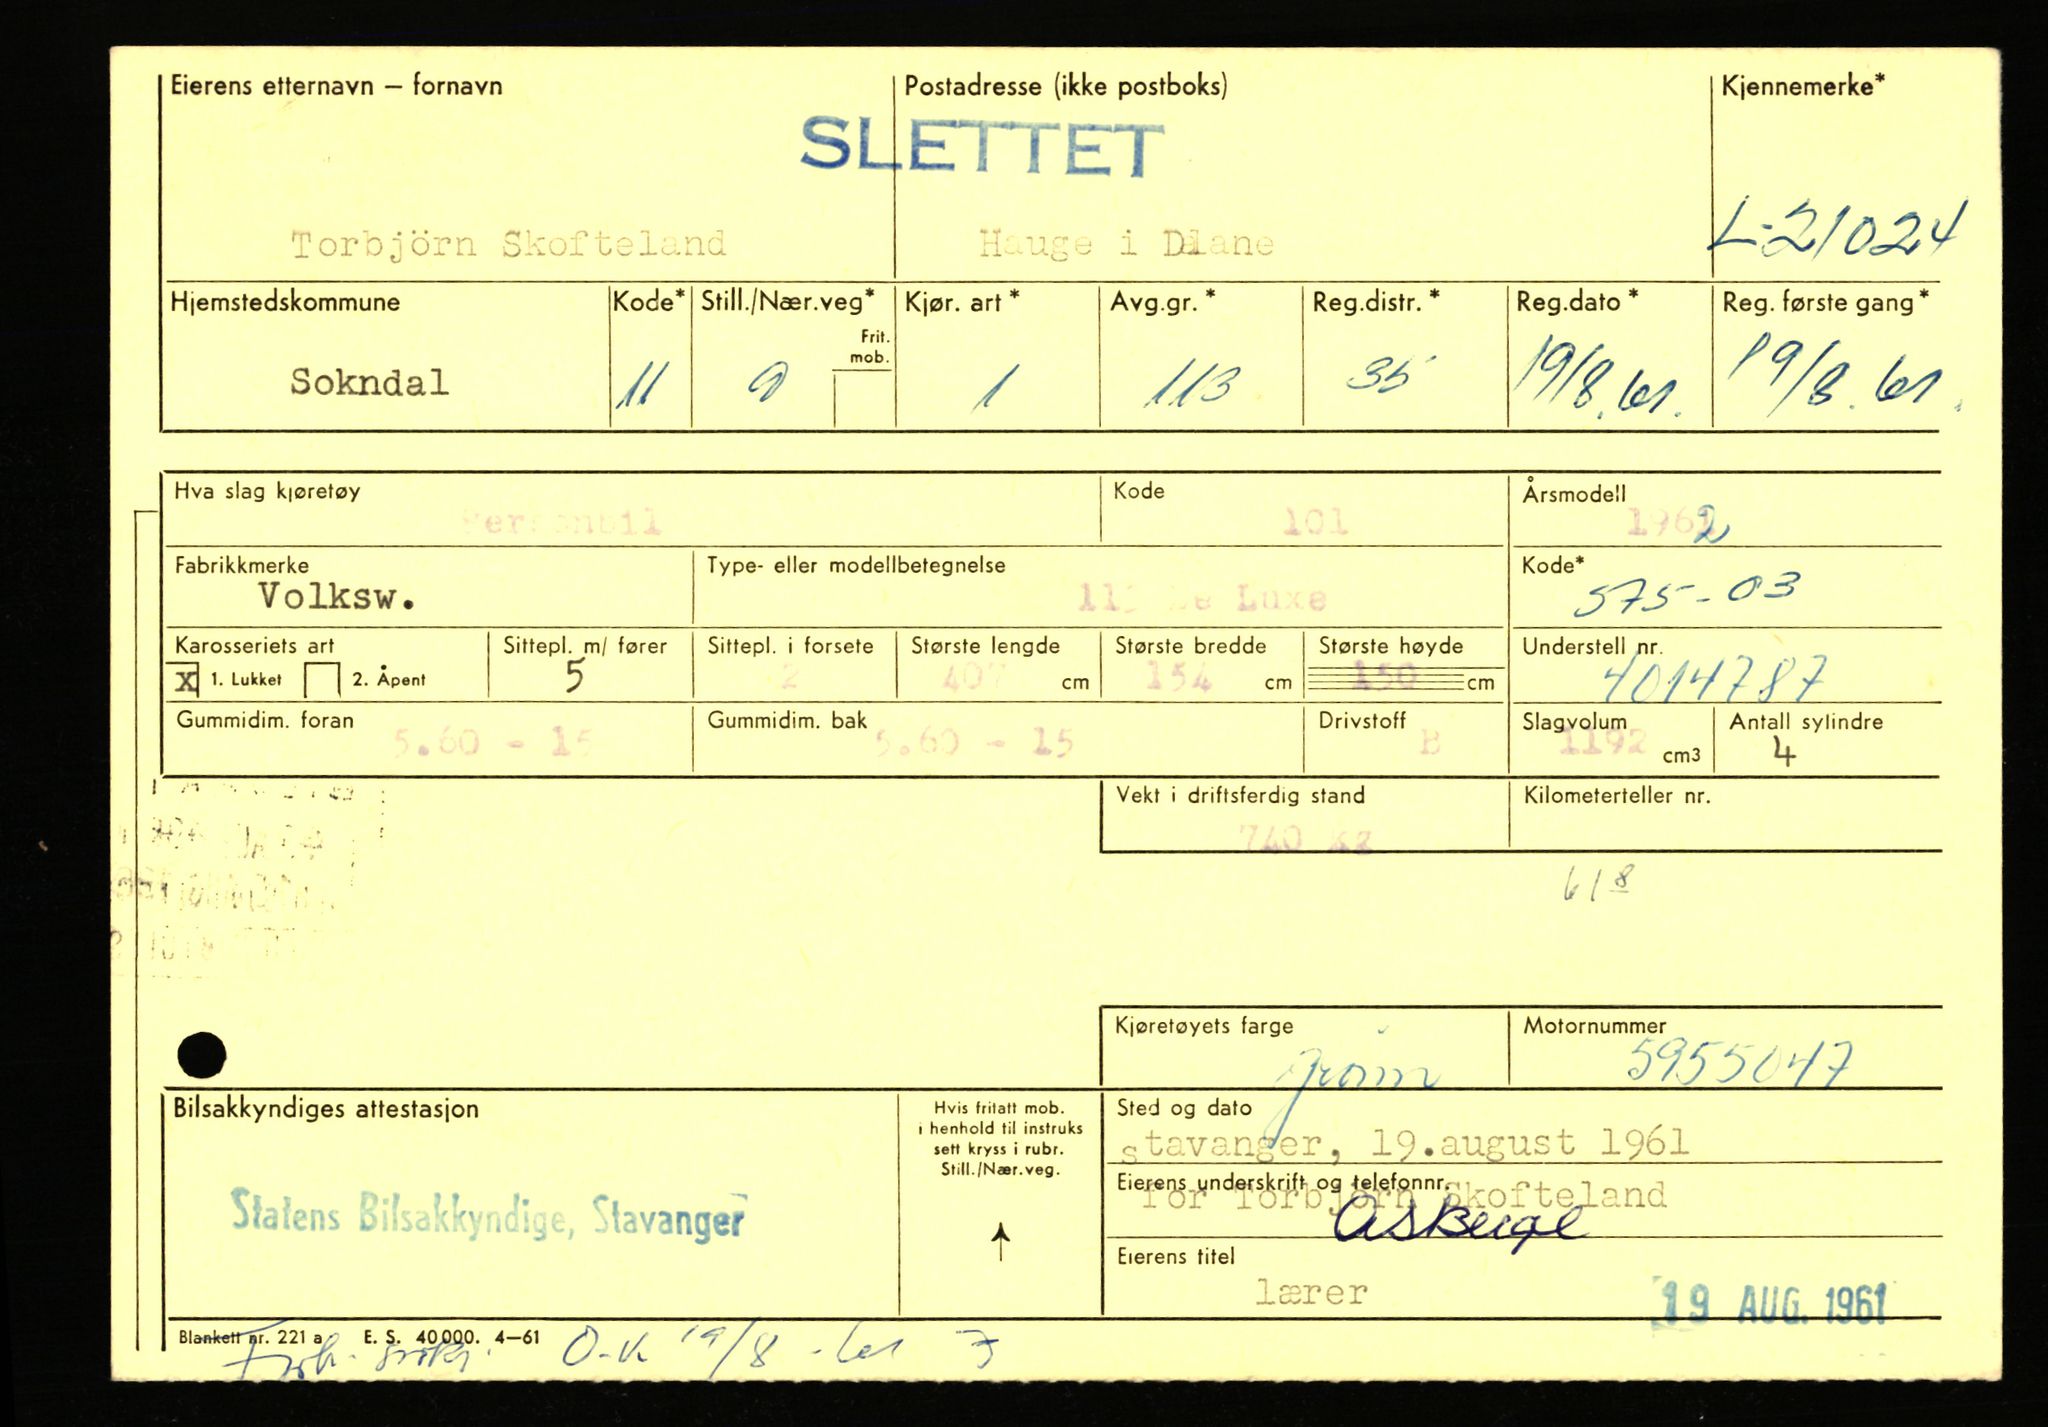 Eierens etternavn – fornavn
Postadresse (ikke postboks)
Kjennemerke*
SLETTET
Torbjörn Skofteland
Hauge i Dalane
L-21024
Hjemstedskommune
Kode*
Still./Nær.veg*
Frit. mob.
Kjør. art *
Avg.gr. *
Reg.distr. *
Reg.dato *
Reg. første gang *
Sokndal
11
1
113
35
19/8.61.
19/8.61.
Hva slag kjøretøy
Kode
Årsmodell
Personbil
101
1962
Fabrikkmerke
Type- eller modellbetegnelse
Kode*
Volksw.
De Luxe
575-03
Karosseriets art
Sittepl. m/ fører
Sittepl. i forsete
Største lengde
Største bredde
Største høyde
Understell nr.
X 1. Lukket
2. Åpent
5
2
407 cm
154 cm
150 cm
4014787
Gummidim. foran
Gummidim. bak
Drivstoff
Slagvolum
Antall sylindre
5.60 - 15
5.60 - 15
B
1192 cm3
4
Vekt i driftsferdig stand
Kilometerteller nr.
740 kg
61 8
Kjøretøyets farge
Motornummer
grönn
5955047
Bilsakkyndiges attestasjon
Hvis fritatt mob.
i henhold til instruks
sett kryss i rubr.
Still./Nær.veg.
Sted og dato
stavanger, 19.august 1961
Eierens underskrift og telefonnr.
for Torbjörn Skofteland
Statens Bilsakkyndige, Stavanger
Eierens titel
lærer
19 AUG. 1961
Blankett nr. 221 a E. S. 40 000. 4–61
O.K 19/8 - 61